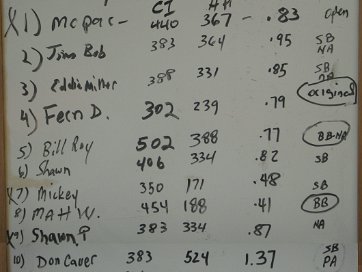 CI HP
X1) Mopar- 440 367 - .83 open
2) Jim Bob 383 364 .95 SB NA
3) Eddie Miller 388 331 .85 SB NA
4) Fern D. 302 239 .79 original
5) Bill Roy 502 388 .77 BB-NA
6) Shawn 406 334 .82 SB
X7) Mickey 350 171 .48 SB
8) MAHW. 454 188 .41 BB
X9) Shawn P 383 334 .87 NA
10) Don Caver 383 524 1.37 SB PA